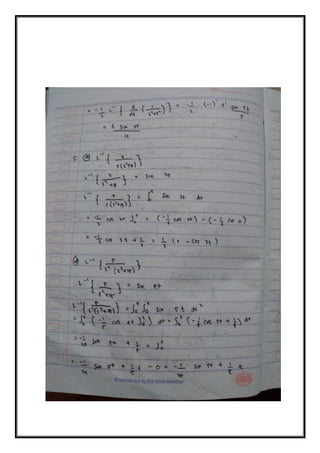 = -1/2 L⁻¹ { d/ds ( 1/s²+25 ) } = -1/2 (-1)' t' sin 5t/5
= t sin 5t/10
5. a) L⁻¹ { 3/s(s²+9) }
L⁻¹ { 3/s²+9 } = sin 3t
L⁻¹ { 3/s(s²+9) } = ∫₀ᵗ sin 3t dt
= -1/3 cos 3t ]₀ᵗ = (-1/3 cos 3t) - (-1/3 cos 0)
= -1/3 cos 3t + 1/3 = 1/3 (1 - cos 3t)
b) L⁻¹ { 5/s²(s²+25) }
L⁻¹ { 5/s²+25 } = sin 5t
L⁻¹ { 5/s²(s²+25) } = ∫₀ᵗ ∫₀ᵗ sin 5t dt²
= ∫₀ᵗ ( -1/5 cos 5t ]₀ᵗ ) dt = ∫₀ᵗ ( -1/5 cos 5t + 1/5 ) dt
= -1/25 sin 5t + 1/5 t ]₀ᵗ
= -1/25 sin 5t + 1/5 t - 0 = -1/25 sin 5t + 1/5 t
Experience is the best teacher